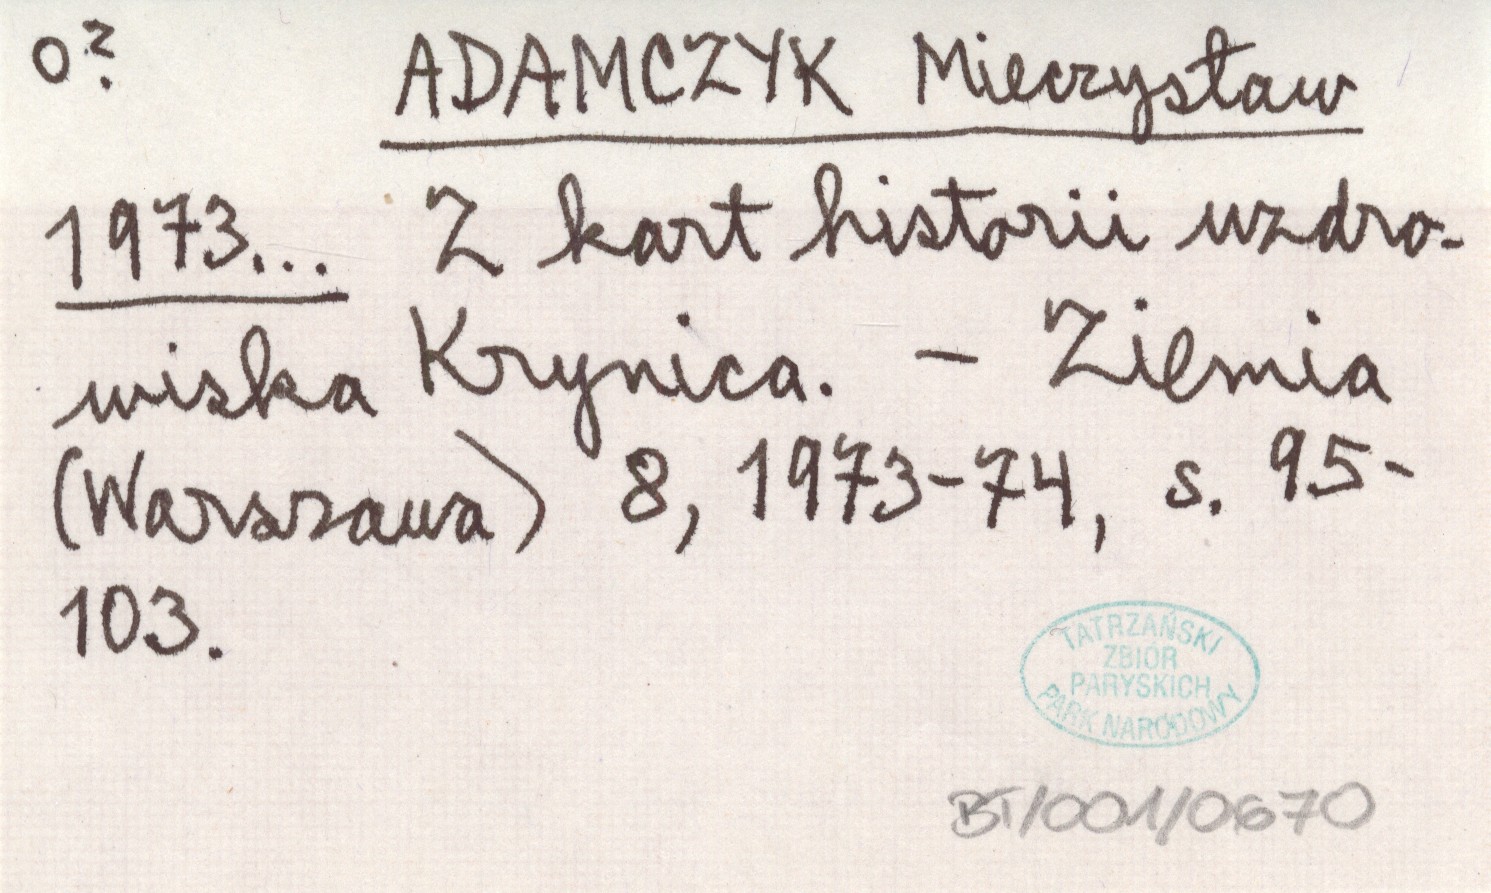 o?
ADAMCZYK Mieczysław
1973... Z kart historii uzdro-
wiska Krynica. – Ziemia
(Warszawa) 8, 1973-74, s. 95-
103.
TATRZAŃSKI
ZBIÓR
PARYSKICH
PARK NARODOWY
BT/001/0670